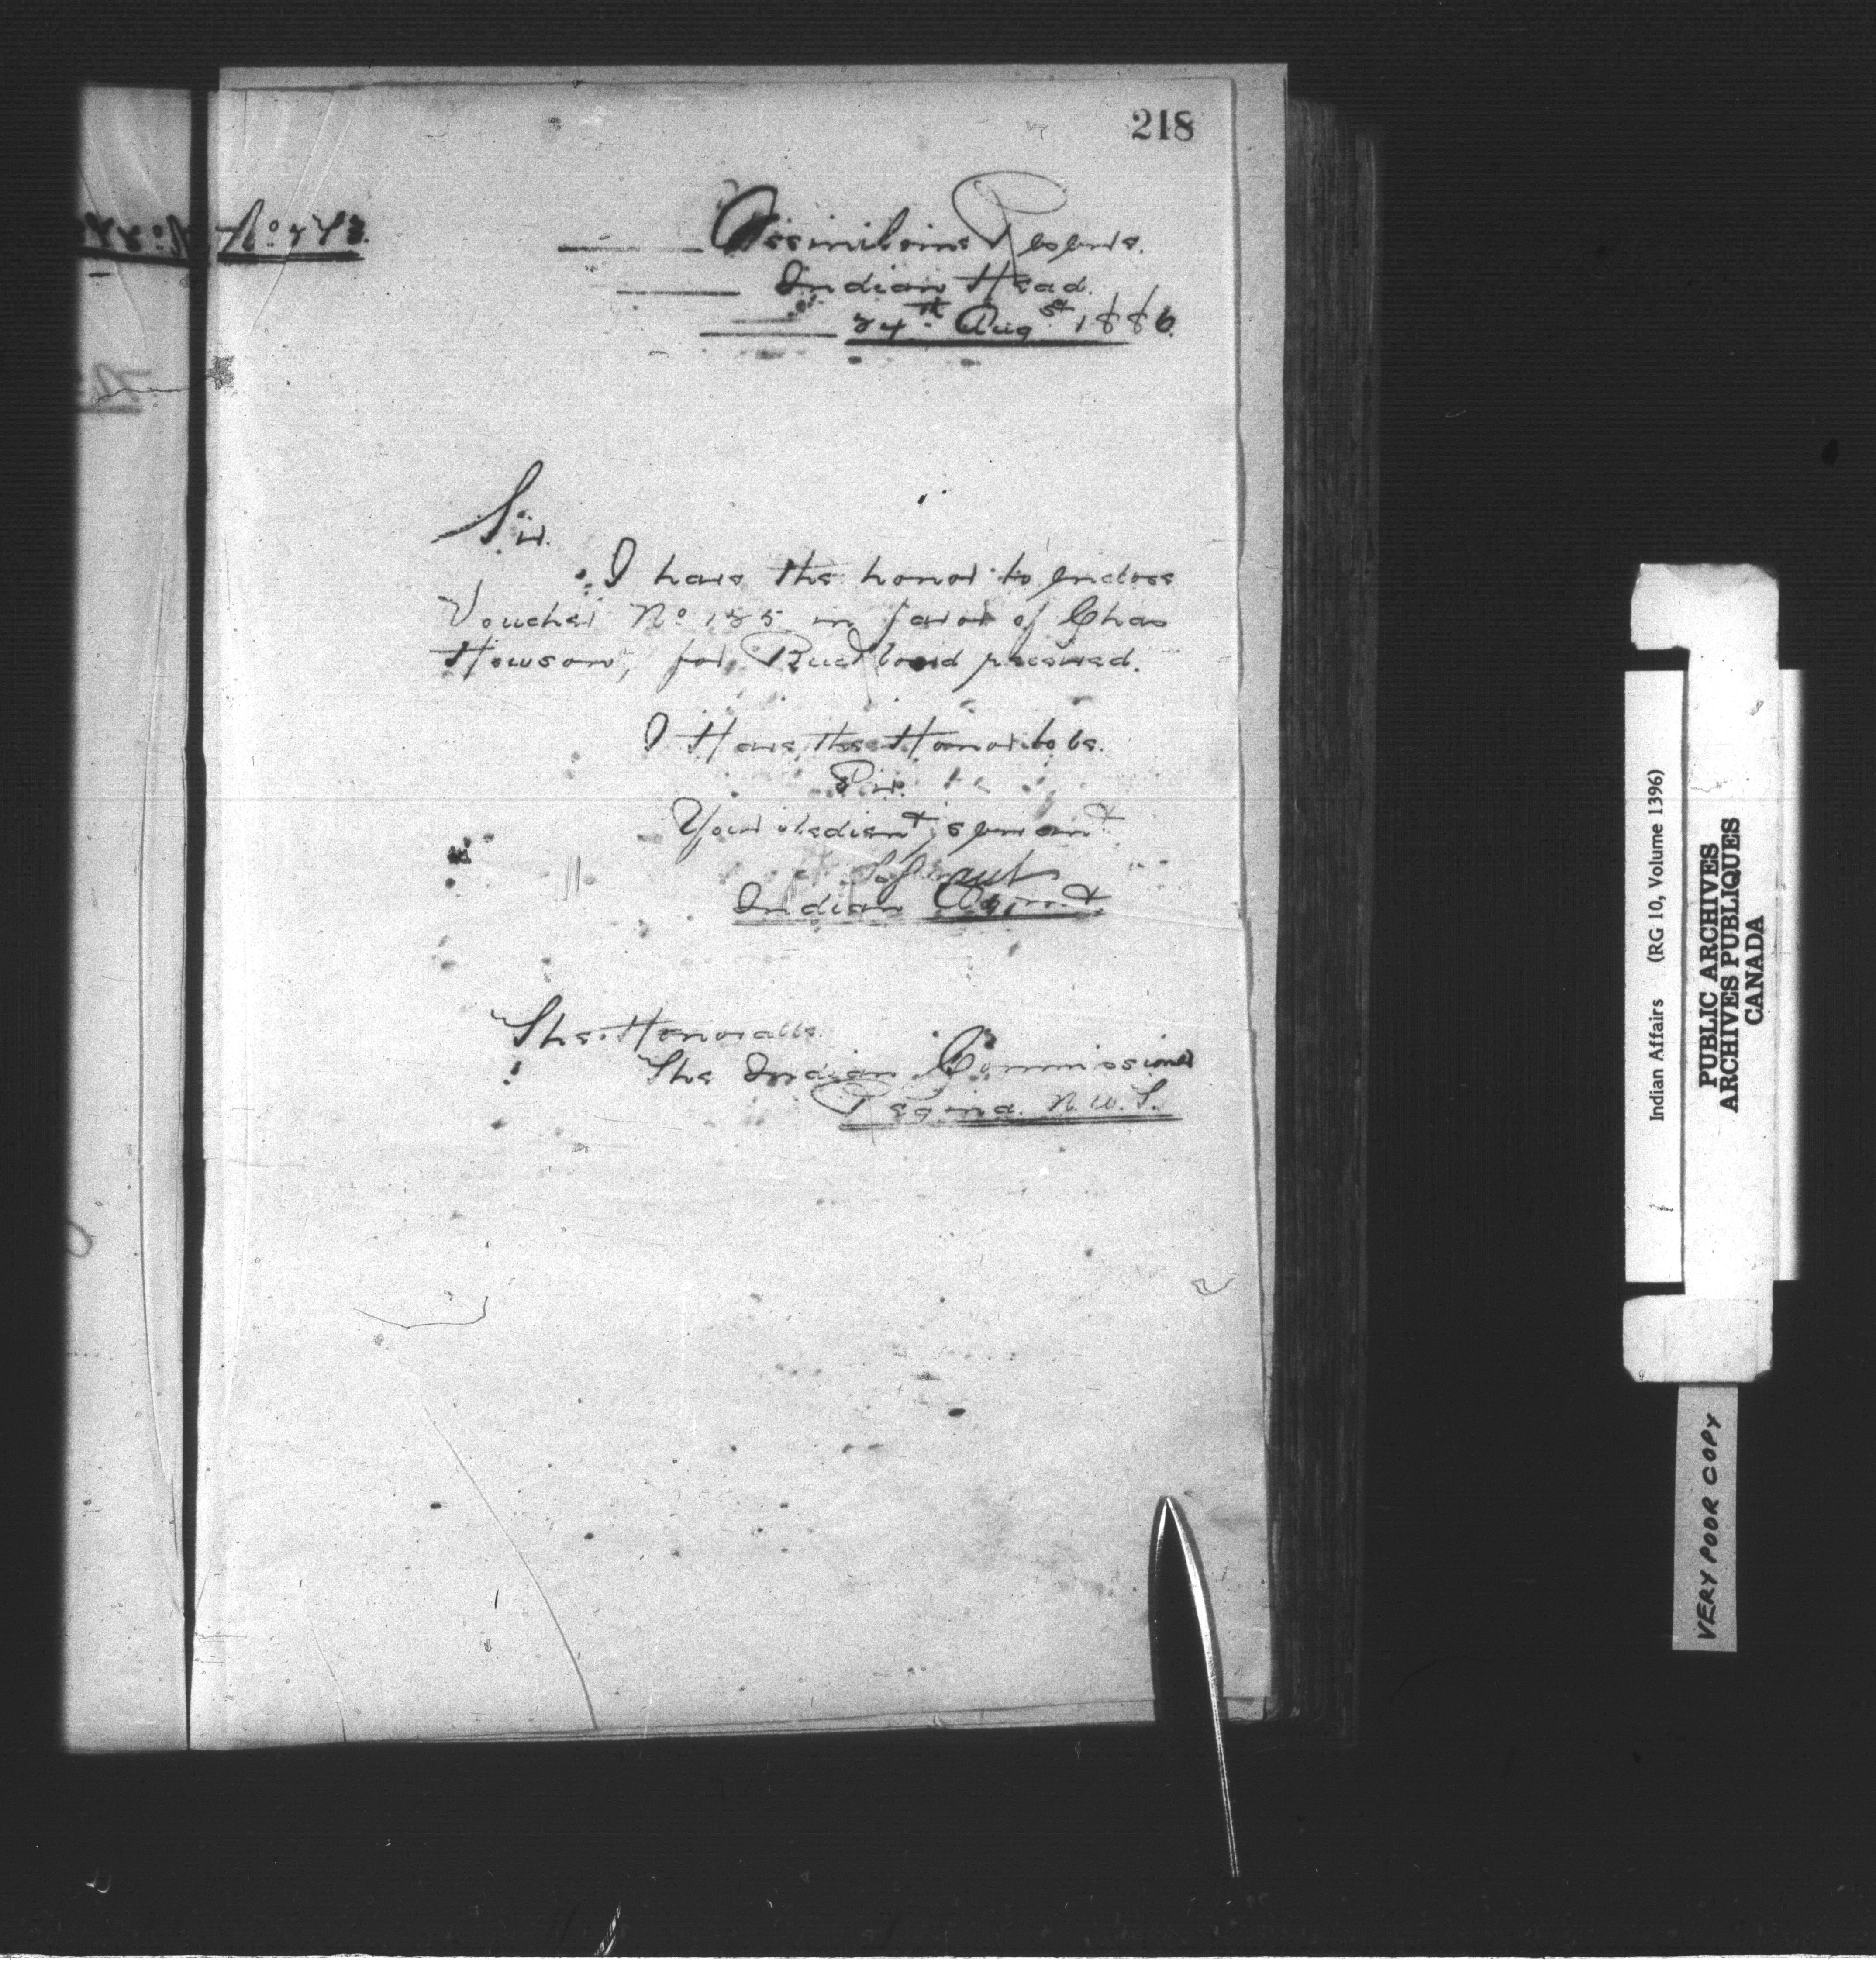 218
No 273.
Assiniboine Reserve.
Indian Head.
24th Augst 1886.
Sir.
I have the honor to enclose
Voucher No 135 in favor of Chas
Howson, for received.
I Have the Honor to be.
Sir.
Your obedient servant
Indian Agent.
The Honorable.
The Indian Commissioner
Regina. N. W. T.
Indian Affairs (RG 10, Volume 1396)
PUBLIC ARCHIVES
ARCHIVES PUBLIQUES
CANADA
VERY POOR COPY